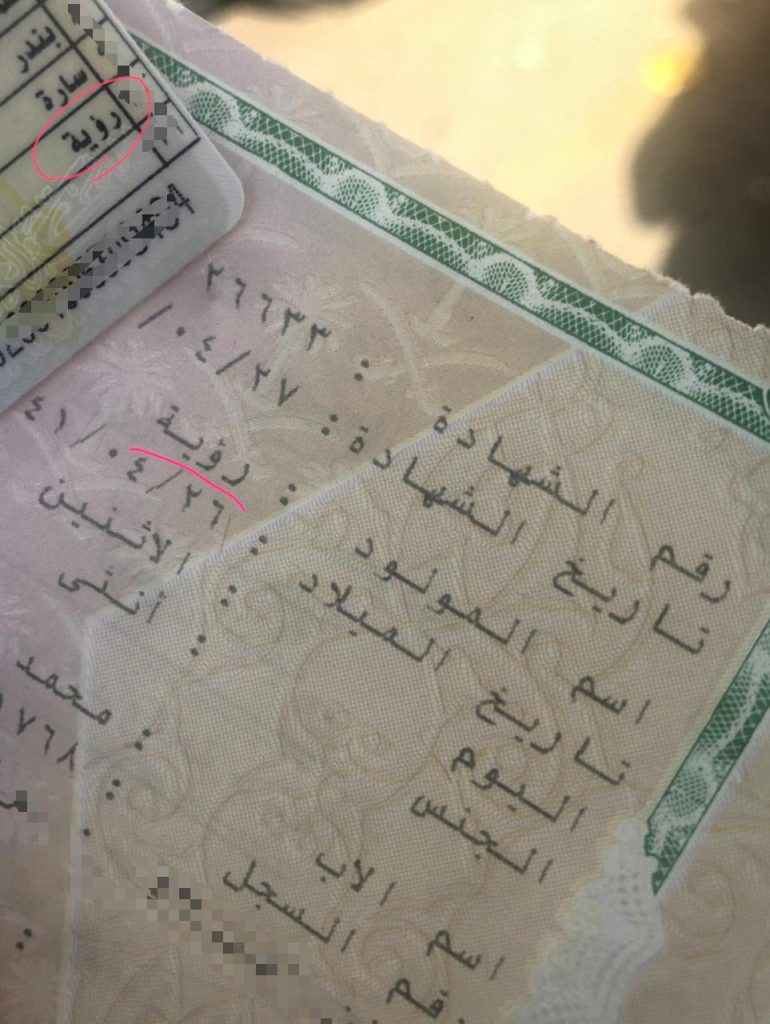 بندر
سارة
رؤية
رقم الشهادة : ٢٦٦٣٣
تاريخ الشهادة : ٠٤/٢٧/
اسم المولود : رؤية
تاريخ الميلاد : ٤١/٠٤/٢٦
اليوم : الاثنين
الجنس : أنثى
اسم الاب : محمد
رقم السجل : ٧٦٨